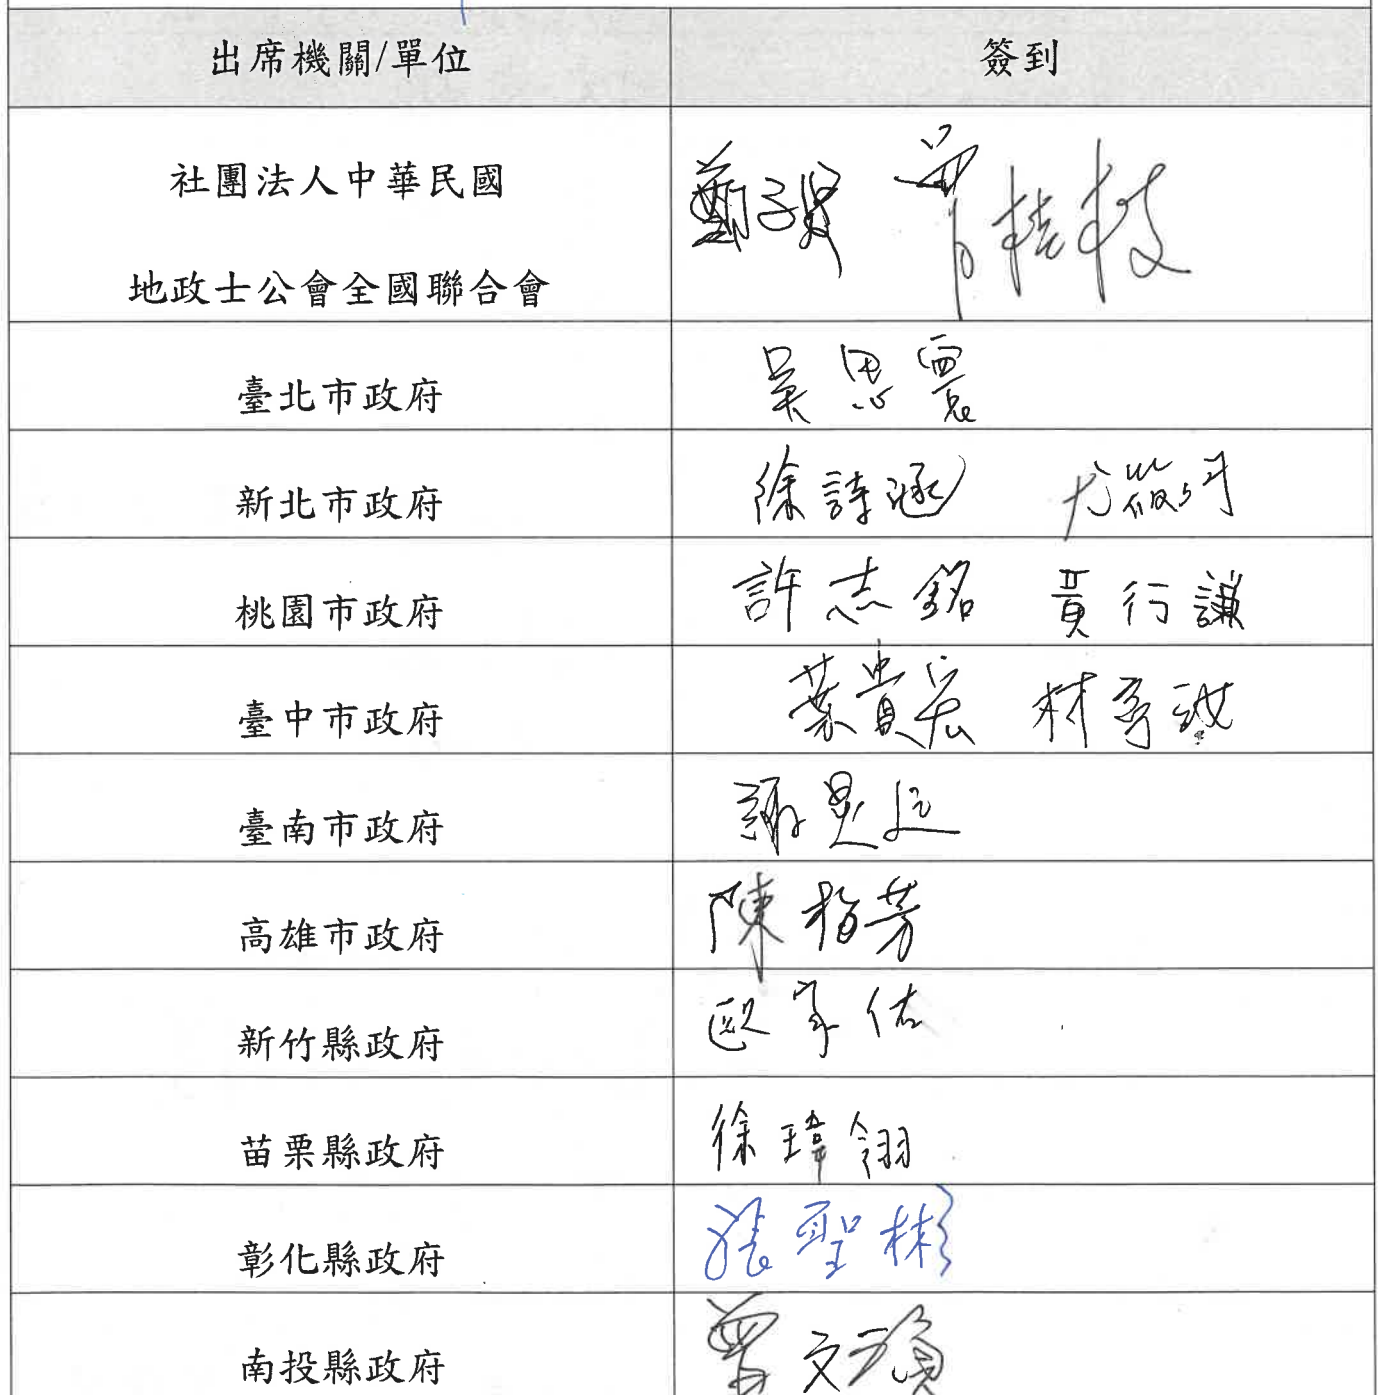 出席機關/單位 簽到
社團法人中華民國
地政士公會全國聯合會 鄭子賢 曾桂枝
臺北市政府 吳思寰
新北市政府 徐詩涵 尤筱
桃園市政府 許志銘 黃行謙
臺中市政府 葉貴宏 林
臺南市政府 謝旻
高雄市政府 陳梅芳
新竹縣政府 歐家佑
苗栗縣政府 徐瑋翎
彰化縣政府 張聖彬
南投縣政府 曾文